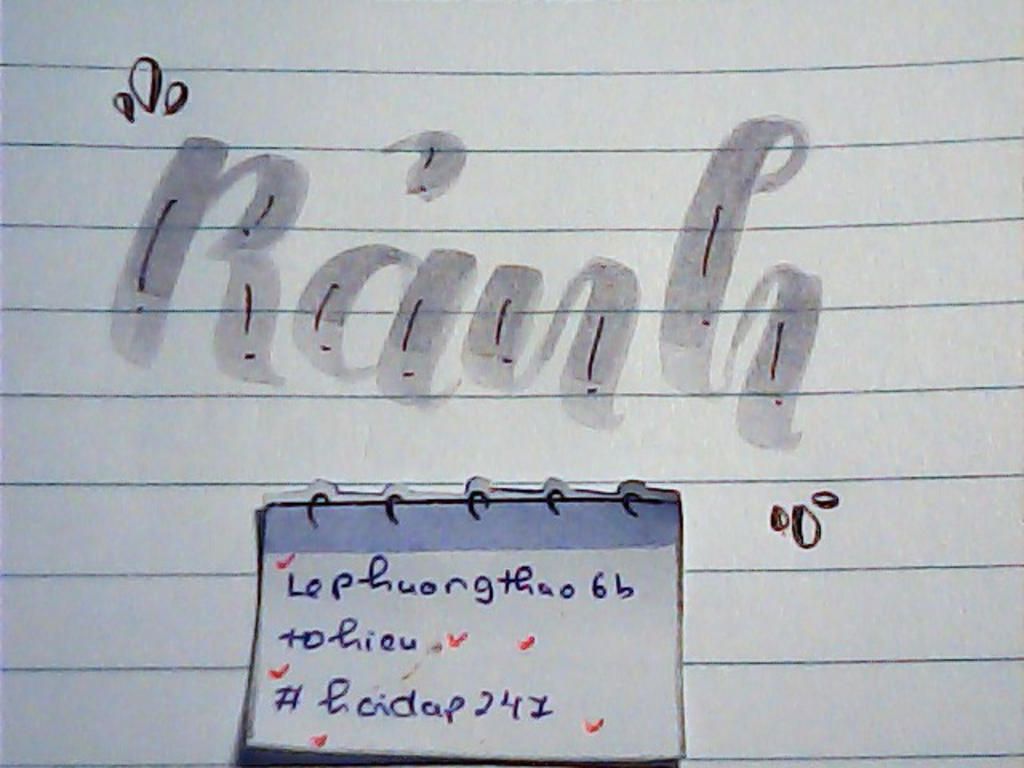 Rảnh
Lephuongthao6b
tohieu
# hoidap247